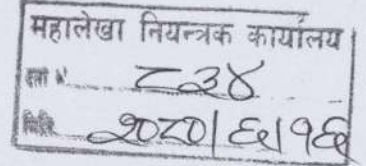 महालेखा नियन्त्रक कार्यालय
८३४
मिति २०८०।६।१६